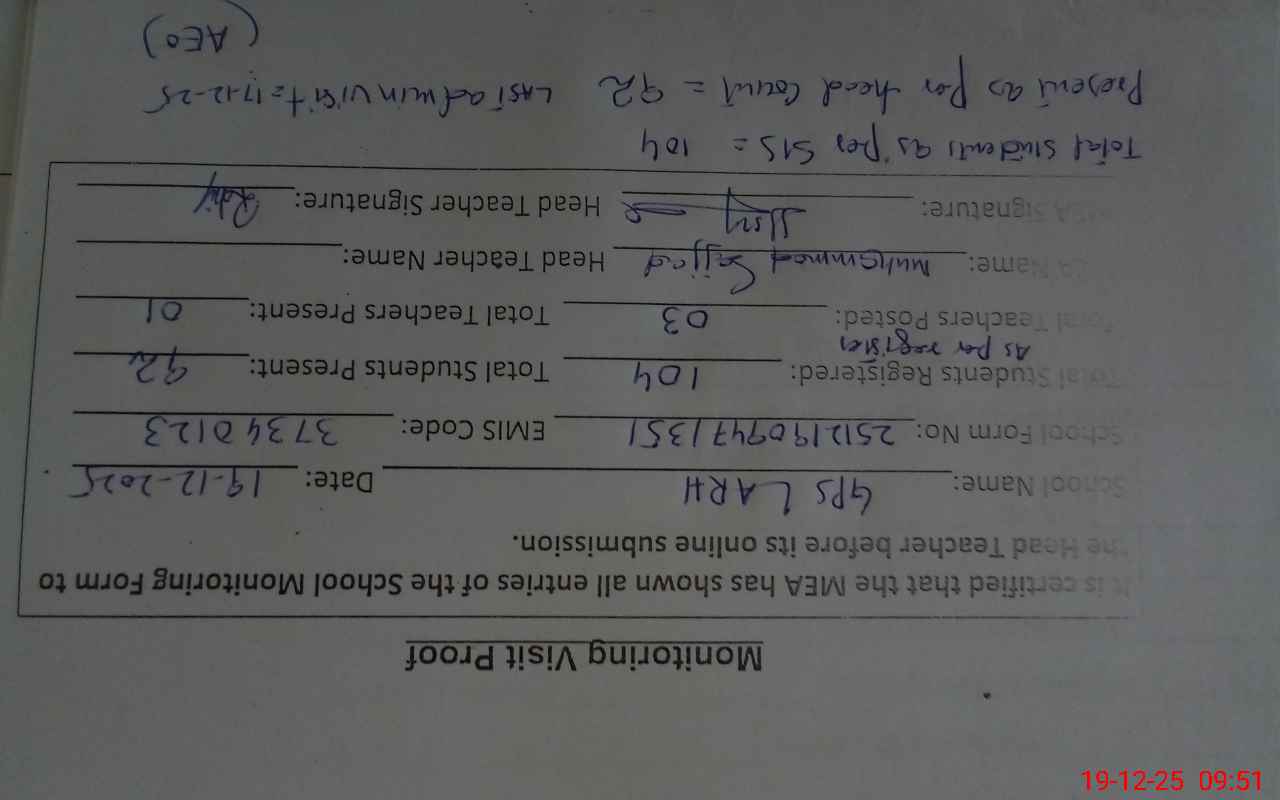 Monitoring Visit Proof
It is certified that the MEA has shown all entries of the School Monitoring Form to
the Head Teacher before its online submission.
School Name: GPS LARH Date: 19-12-2025
School Form No: 25121909471351 EMIS Code: 37340123
Total Students Registered: 104 Total Students Present: 92
As per register
Total Teachers Posted: 03 Total Teachers Present: 01
MEA Name: Muhammad Sajjad Head Teacher Name:
MEA Signature: Head Teacher Signature:
Total students as per SIS = 104
Present as per head count = 92 Last admin visit = 17-12-25
(AEO)
19-12-25 09:51